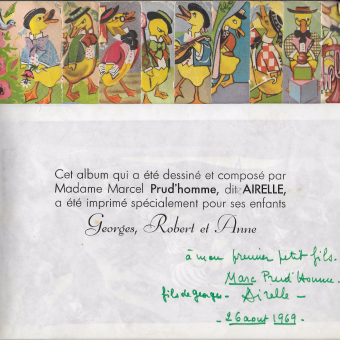 Cet album qui a été dessiné et composé par
Madame Marcel Prud'homme, dit AIRELLE,
a été imprimé spécialement pour ses enfants
Georges, Robert et Anne
à mon premier petit fils.
Marc Prud'Homme.
fils de Georges - Airelle -
- 26 aout 1969 -